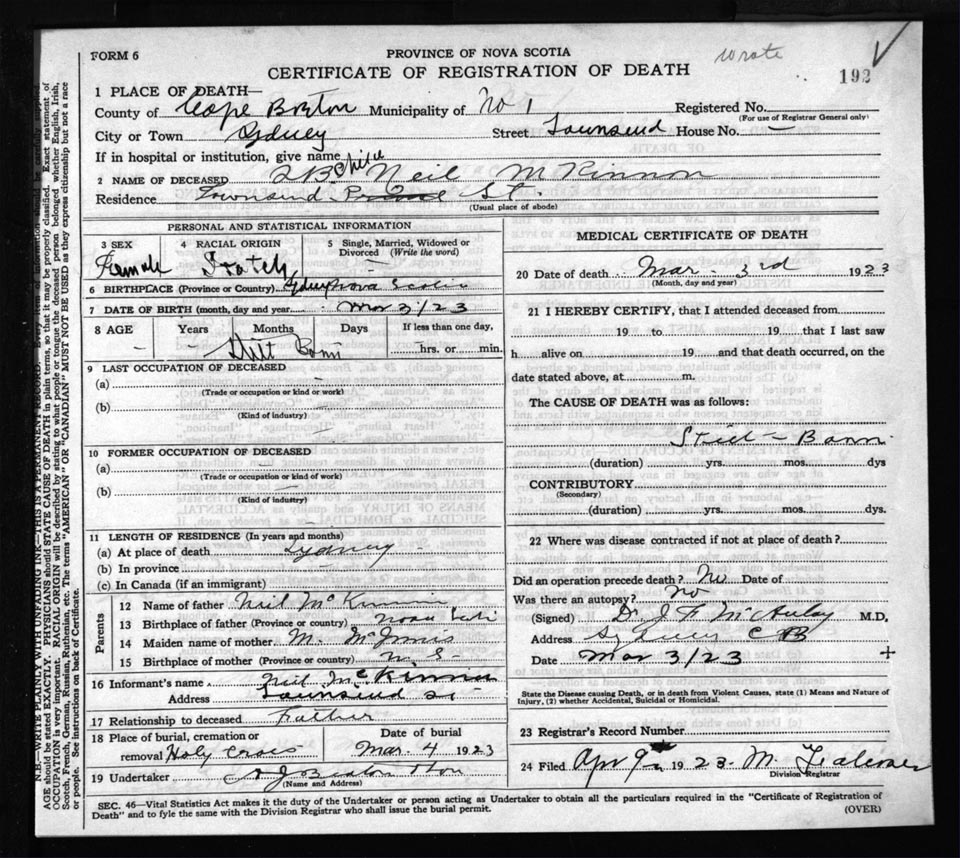 FORM 6
PROVINCE OF NOVA SCOTIA
wrote
CERTIFICATE OF REGISTRATION OF DEATH
192
1 PLACE OF DEATH—
County of Cape Breton Municipality of No 1 Registered No.
(For use of Registrar General only)
City or Town Sydney Street Townsend House No. —
If in hospital or institution, give name
2 NAME OF DECEASED Child Neil McKinnon
Residence Townsend St.
(Usual place of abode)
PERSONAL AND STATISTICAL INFORMATION
3 SEX 4 RACIAL ORIGIN 5 Single, Married, Widowed or Divorced (Write the word)
Female Scotch —
6 BIRTHPLACE (Province or Country) Sydney Nova Scotia
7 DATE OF BIRTH (month, day and year) Mar 3/23
8 AGE Years Months Days If less than one day,
hrs. or min.
Still Born
9 LAST OCCUPATION OF DECEASED
(a)
(Trade or occupation or kind or work)
(b)
(Kind of industry)
10 FORMER OCCUPATION OF DECEASED
(a)
(Trade or occupation or kind of work)
(b)
(Kind of industry)
11 LENGTH OF RESIDENCE (In years and months)
(a) At place of death Sydney
(b) In province
(c) In Canada (if an immigrant)
Parents
12 Name of father Neil McKinnon
13 Birthplace of father (Province or country) Nova Scotia
14 Maiden name of mother M. McInnis
15 Birthplace of mother (Province or country) N. S—
16 Informant's name Neil McKinnon
Address Townsend St
17 Relationship to deceased Father
18 Place of burial, cremation or removal Holy Cross Date of burial Mar. 4 1923
19 Undertaker A J Beaton & Son
(Name and Address)
MEDICAL CERTIFICATE OF DEATH
20 Date of death Mar. 3rd 1923
(Month, day and year)
21 I HEREBY CERTIFY, that I attended deceased from
19 to 19 that I last saw
h alive on 19 and that death occurred, on the
date stated above, at m.
The CAUSE OF DEATH was as follows:
Still-Born
(duration) yrs. mos. dys
CONTRIBUTORY
(Secondary)
(duration) yrs. mos. dys.
22 Where was disease contracted if not at place of death?
Did an operation precede death? No Date of
Was there an autopsy? No
(Signed) Dr. J F McAulay M.D.
Address Sydney C B
Date Mar 3/23
State the Disease causing Death, or in death from Violent Causes, state (1) Means and Nature of
Injury, (2) whether Accidental, Suicidal or Homicidal.
23 Registrar's Record Number
24 Filed Apr 9 1923 M.
Division Registrar
SEC. 46—Vital Statistics Act makes it the duty of the Undertaker or person acting as Undertaker to obtain all the particulars required in the "Certificate of Registration of
Death" and to fyle the same with the Division Registrar who shall issue the burial permit.
(OVER)
N.B.—WRITE PLAINLY WITH UNFADING INK—THIS IS A PERMANENT RECORD.
AGE should be stated EXACTLY. PHYSICIANS should STATE CAUSE OF DEATH in plain terms, so that it may be properly classified. Exact statement of
OCCUPATION is very important. RACIAL ORIGIN will be described by stating to what people or tongue the deceased person belonged whether English, Irish,
Scotch, French, German, Russian, Ruthenian, etc. The terms "AMERICAN" OR "CANADIAN" MUST NOT BE USED as they express citizenship but not a race
or people. See instructions on back of Certificate.